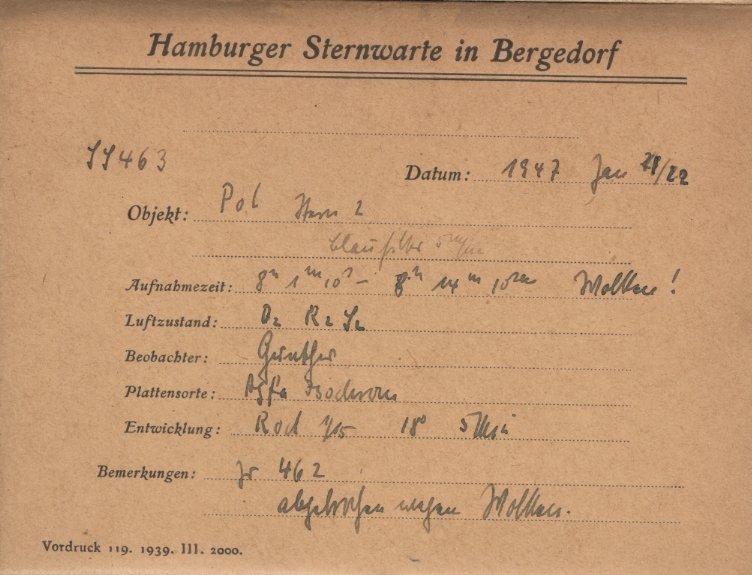 Hamburger Sternwarte in Bergedorf
SS463
Datum: 1947 Jan 21/22
Objekt: Pol Stern 2
Blaufilter 5 min
Aufnahmezeit: 8h 1m 10s – 8h 14m 10s Wolken!
Luftzustand: D2 R2 S2
Beobachter: Günther
Plattensorte: Agfa Isochrom
Entwicklung: Rod 1/25 18° 5 Min
Bemerkungen: Zu 462
abgebrochen wegen Wolken.
Vordruck 119. 1939. III. 2000.